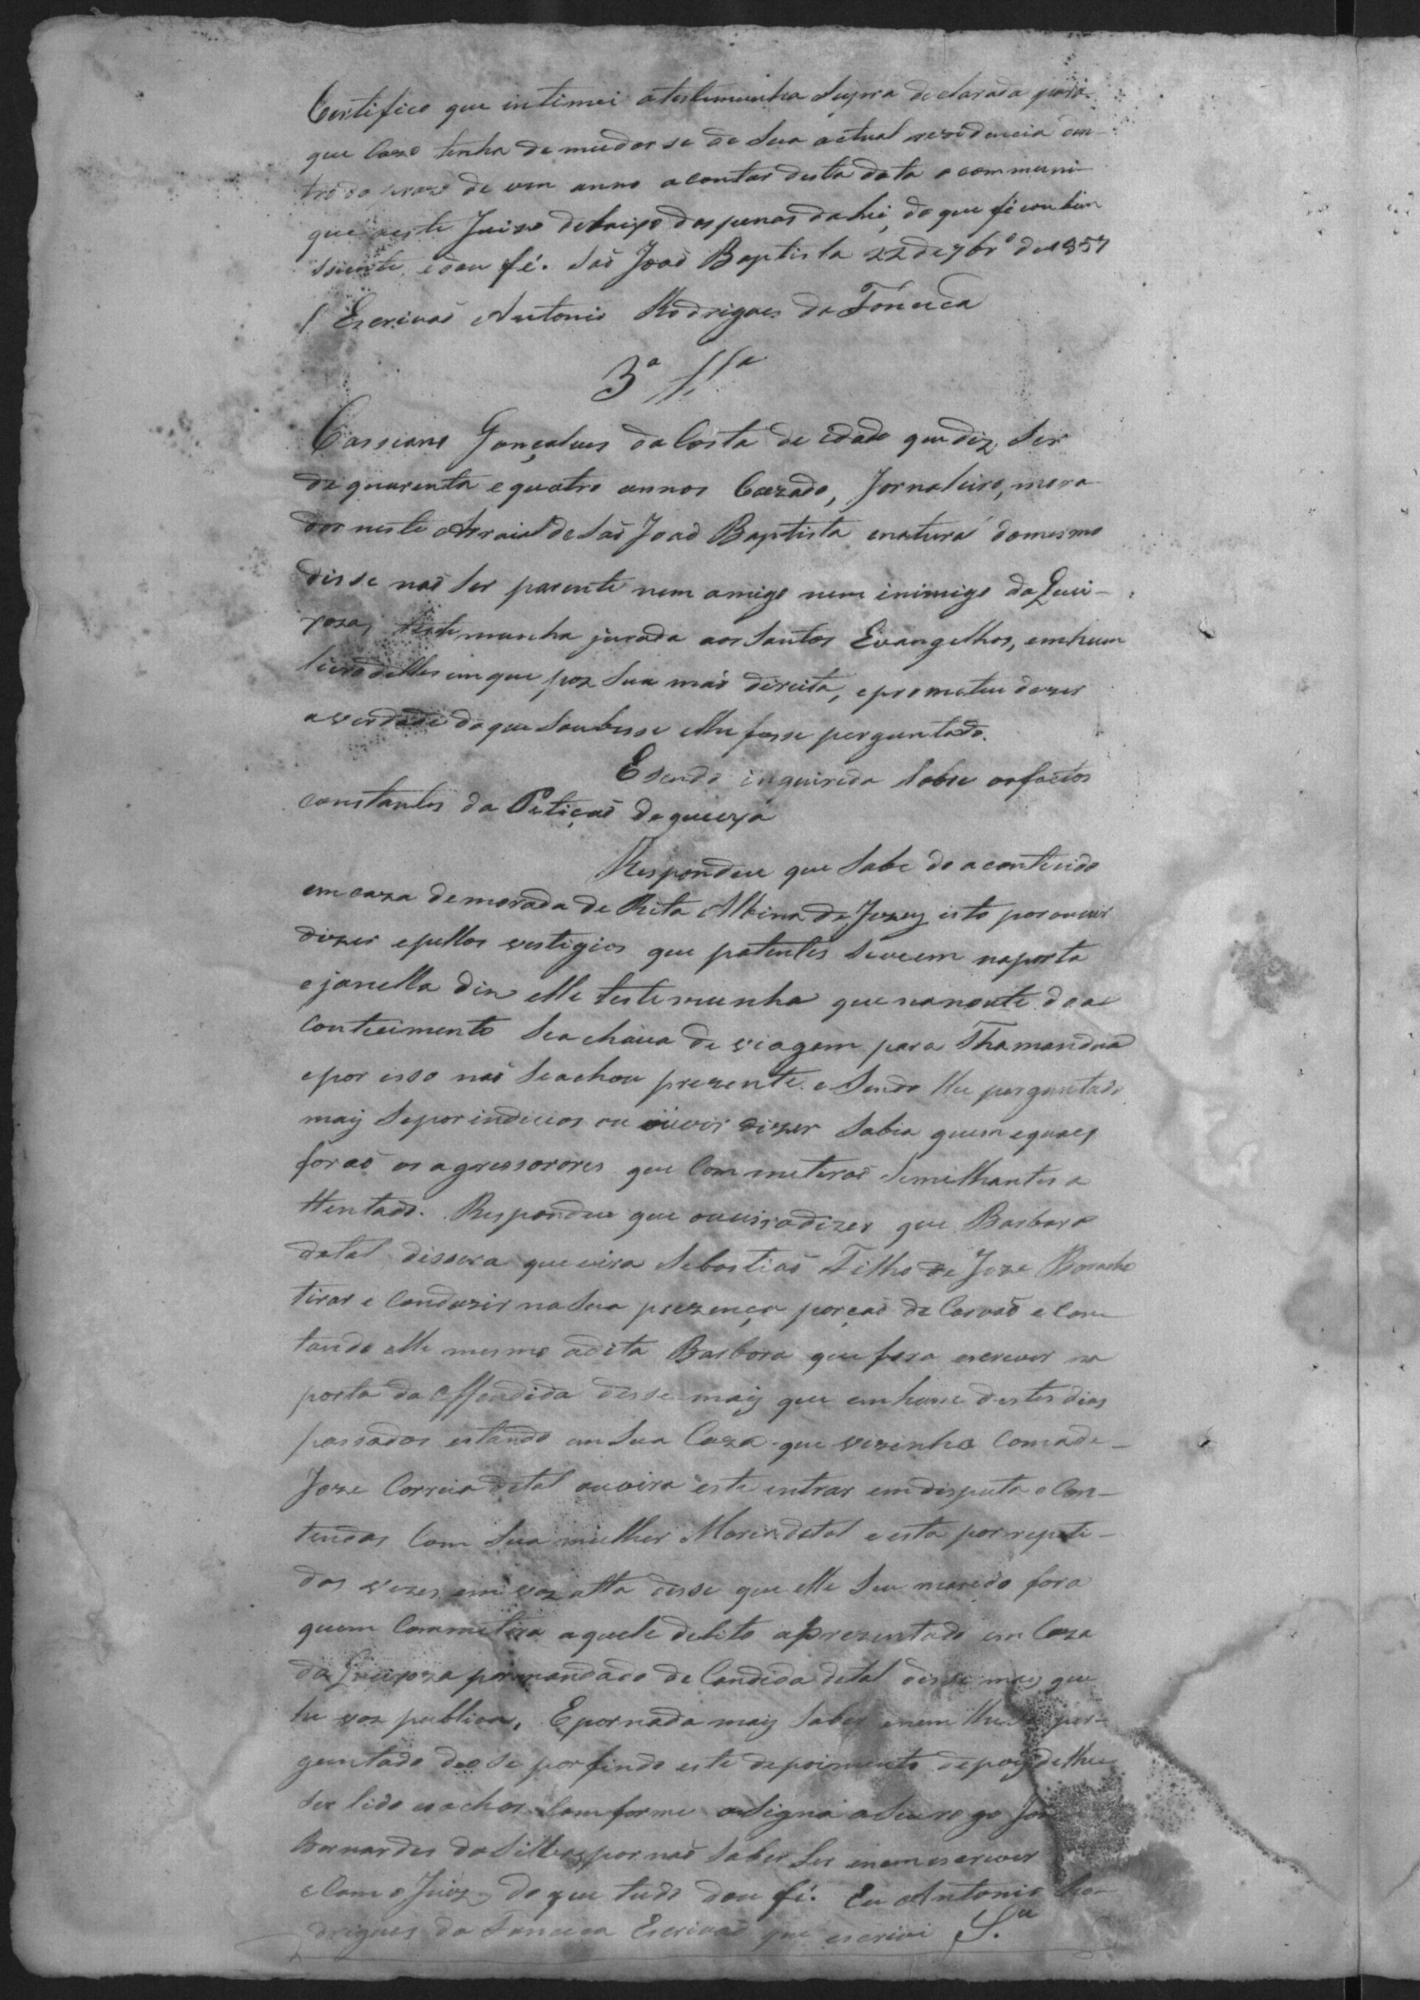 Certifico que intimei atestemunha supra declarada para
que cazo tenha de mudar se de sua actual rezidencia den-
tro do prazo de um anno acontar desta data o communi-
que neste Juizo debaixo das penas da lei, do que ficou bem
sciente, e dou fé. São João Baptista 22 de 7br.º de 1857
O Escrivaõ Antonio Rodrigues da Fonceca
3ª tt.ª
Cassiano Gonçalves da Costa de idade que diz ser
de quarenta e quatro annos Cazado, Jornaleiro, mora
dor neste Arraial de Saõ Joaõ Baptista enatural domesmo
disse naõ ser parente nem amigo nem inimigo da Quei-
xoza, testemunha jurada aos Santos Evangelhos, emhum
livro delles em que poz sua maõ direita, eprometeu dizer
averdade do que soubesse elhe fosse perguntado.
E sendo inquirida sobre osfactos
constantes da Petiçaõ de queixa
Respondeu que sabe do acontecido
em caza demorada de Rita Albina de Jezuz isto por ouvir
dizer epellos vestigios que patentes seveem naporta
e janella diz elle testemunha que nanoute do a
contecimento se achava de viagem para Thamanduá
epor isso naõ seachou prezente. e Sendo lhe perguntado
maiz sepor indicios ou ouvir dizer sabia quem equaes
foraõ os agressorores que Commeteraõ semilhantes a
ttentado. Respondeu que ouvira dizer que Barbara
detal dissera que vira Sebastiaõ Filho de Joze Boracho
tirar e Conduzir na sua prezença porçaõ de Carvaõ e Con
tando elle mesmo adita Barbora que fora escrever na
porta da offendida disse maiz que emhum destes dias
passados estando em sua Caza que vezinha Com a de
Joze Correia detal ouvira este entrar em disputa e Con-
tendas Com sua mulher Maria detal e esta por repeti-
das vezes em voz alta disse que elle seu marido fora
quem Commetera aquele delito aprezentado em Caza
da Queixoza por mandado de Candida detal disse maiz que
he voz publica, E pornada maiz saber enem lhe ser per-
guntado deo se porfindo este depoimento depoiz delhe
ser lido eachar Conforme assigna aseu rogo Joze
Bernardes da Silva por naõ saber ler enem escrever
e Com o Juiz do que tudo dou fé. Eu Antonio Ro-
drigues da Fonceca Escrivaõ que escrivi